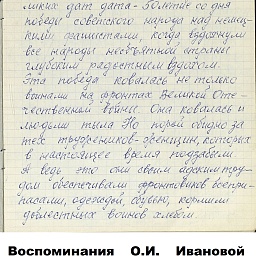 ликих дат дата - 50летие со дня
победы советского народа над немец-
кими фашистами, когда вздохнули
все народы необъятной страны
глубоким радостным вздохом.
Эта победа ковалась не только
воинами на фронтах Великой Оте-
чественной войны. Она ковалась и
людьми тыла Но порой обидно за
тех тружеников-женщин, которых
в настоящее время подзабыли.
А ведь это они своим адским тру-
дом обеспечивали фронтовиков всеприпа-
сами, одеждой, обувью, кормили
доблестных воинов хлебом.
Воспоминания О.И. Ивановой